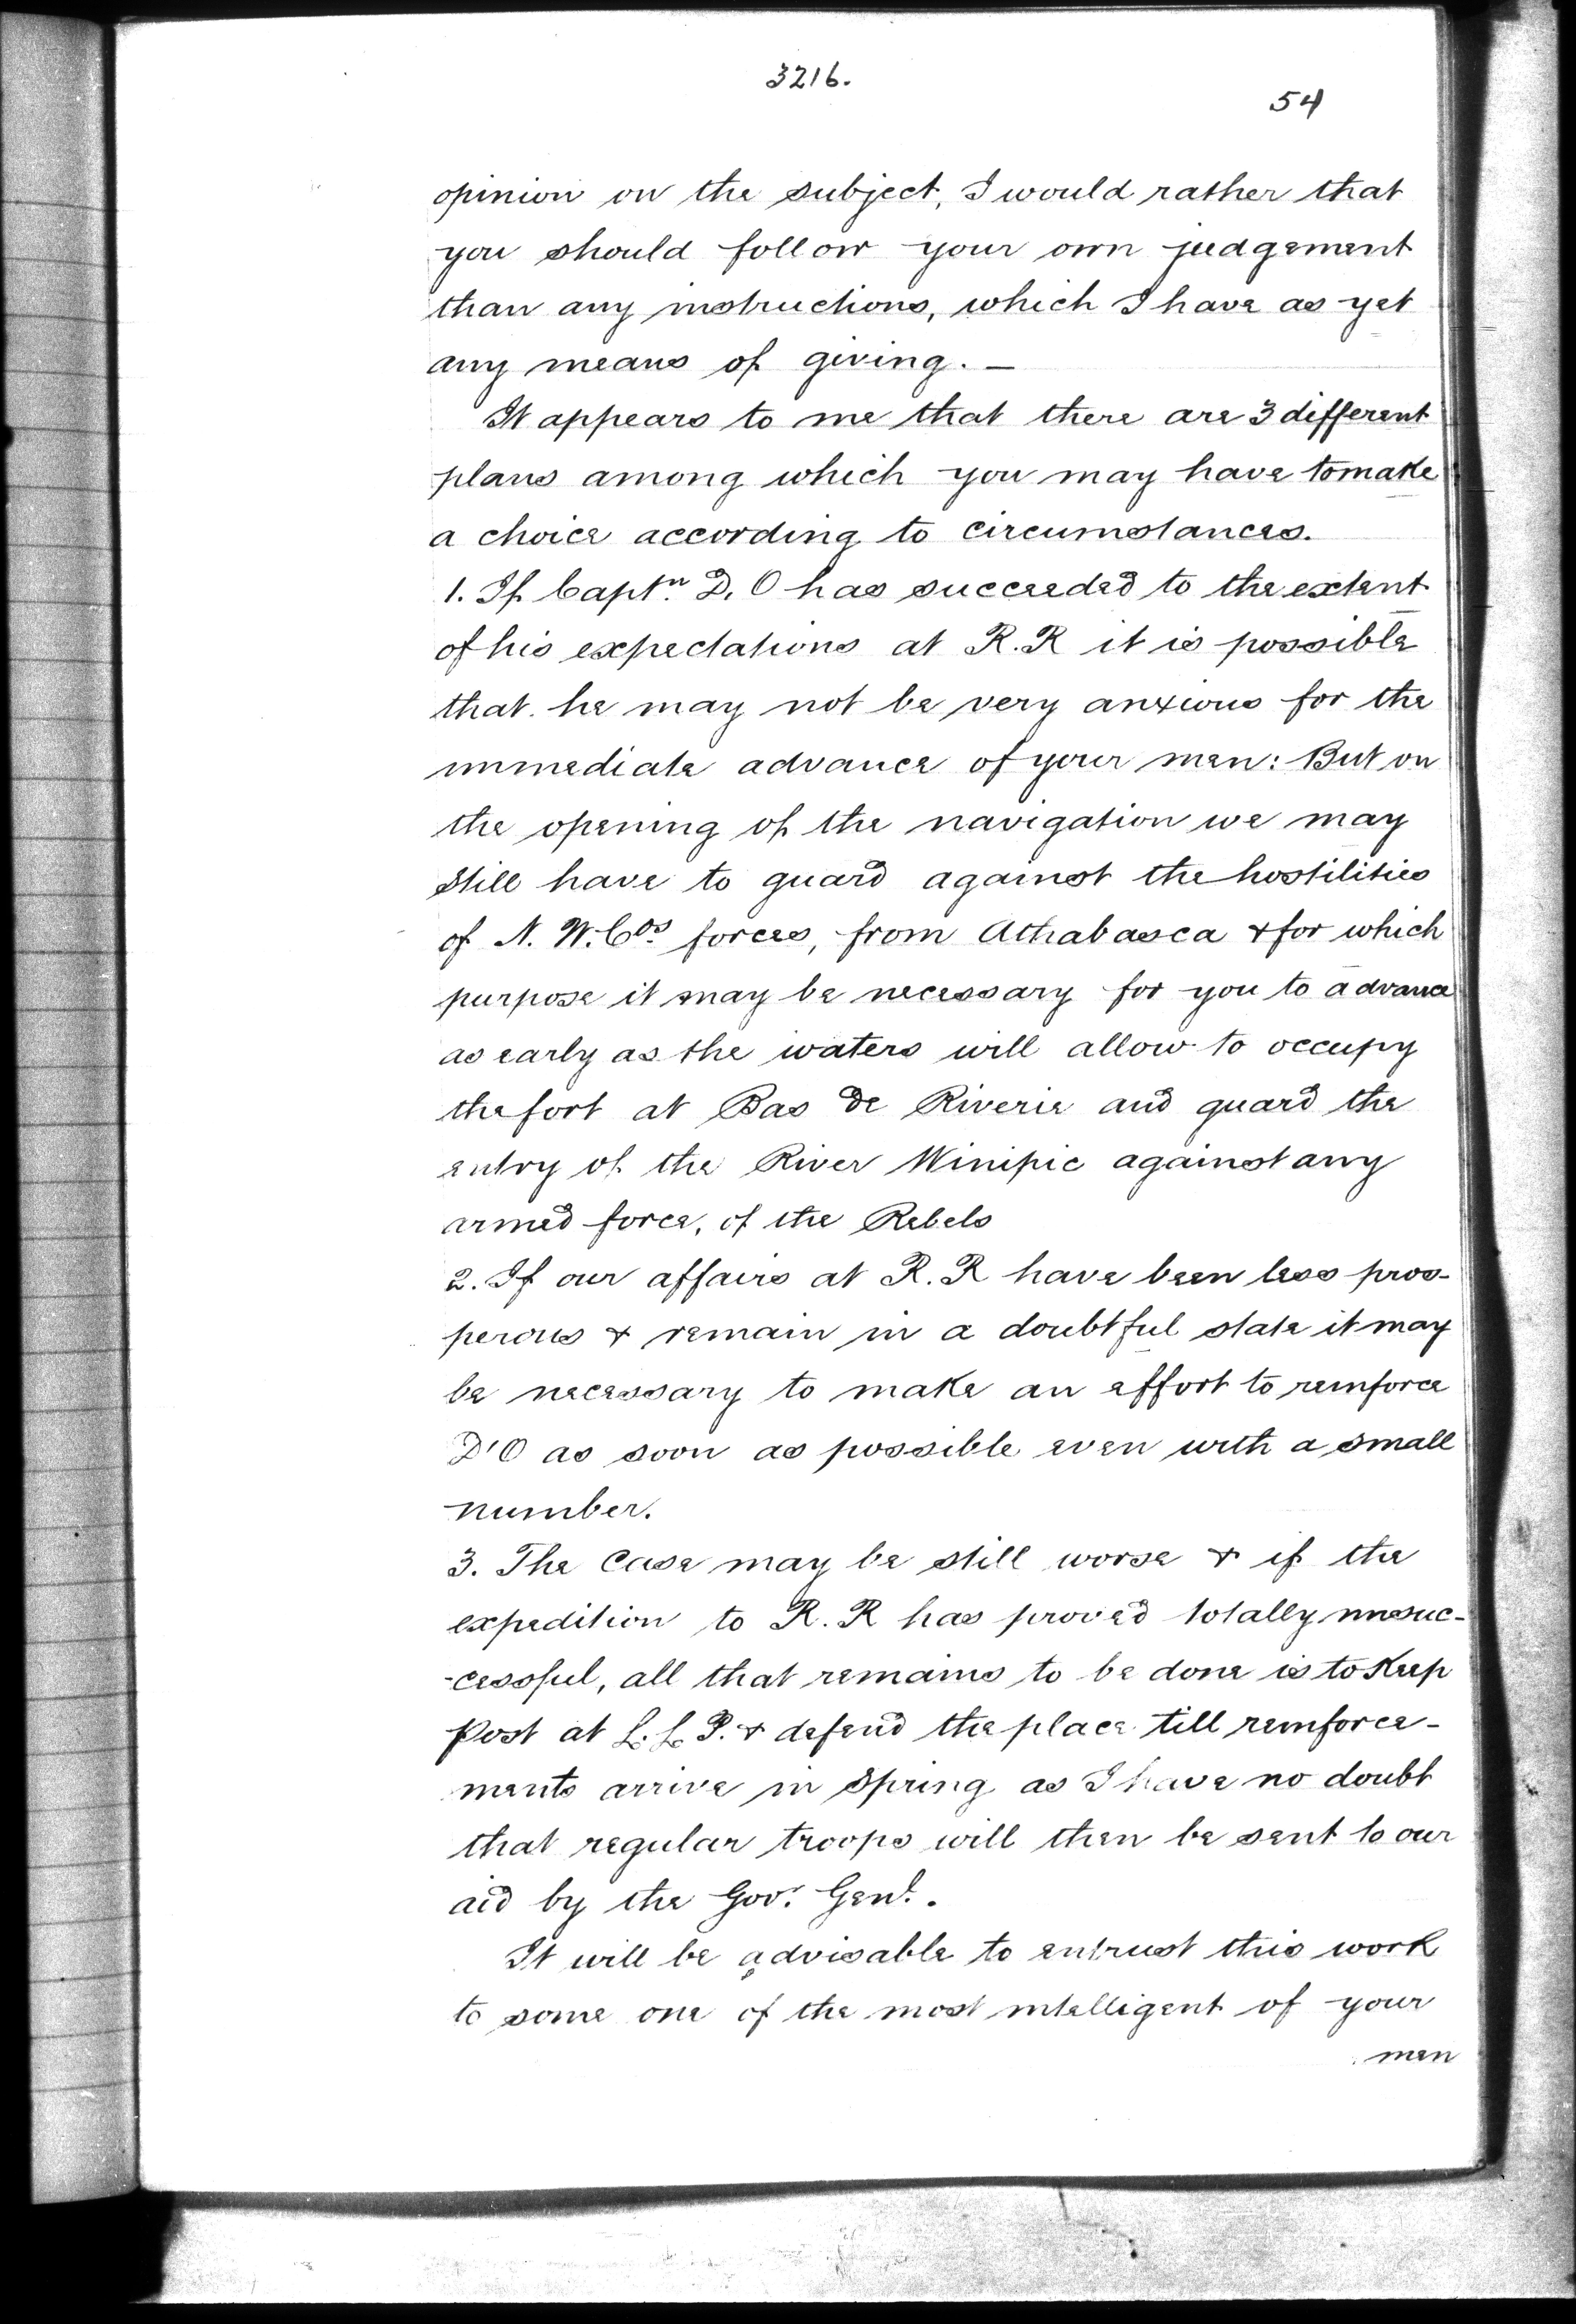 3216.
54
opinion on the subject, I would rather that
you should follow your own judgement
than any instructions, which I have as yet
any means of giving. —
It appears to me that there are 3 different
plans among which you may have to make
a choice according to circumstances.
1. If Captn. D. O has succeeded to the extent
of his expectations at R. R it is possible
that he may not be very anxious for the
immediate advance of your men: But on
the opening of the navigation we may
still have to guard against the hostilities
of N. W. Cos. forces, from Athabasca & for which
purpose it may be necessary for you to advance
as early as the waters will allow to occupy
the fort at Bas de Riverie and guard the
entry of the River Winipic against any
armed force, of the Rebels
2. If our affairs at R. R have been less pros-
perous & remain in a doubtful state it may
be necessary to make an effort to reinforce
D'O as soon as possible even with a small
number.
3. The Case may be still worse & if the
expedition to R. R has proved totally unsuc-
-cessful, all that remains to be done is to Keep
Post at L. L. P. & defend the place till reinforce-
ments arrive in Spring as I have no doubt
that regular troops will then be sent to our
aid by the Govr. Genl.
It will be advisable to entrust this work
to some one of the most intelligent of your
men